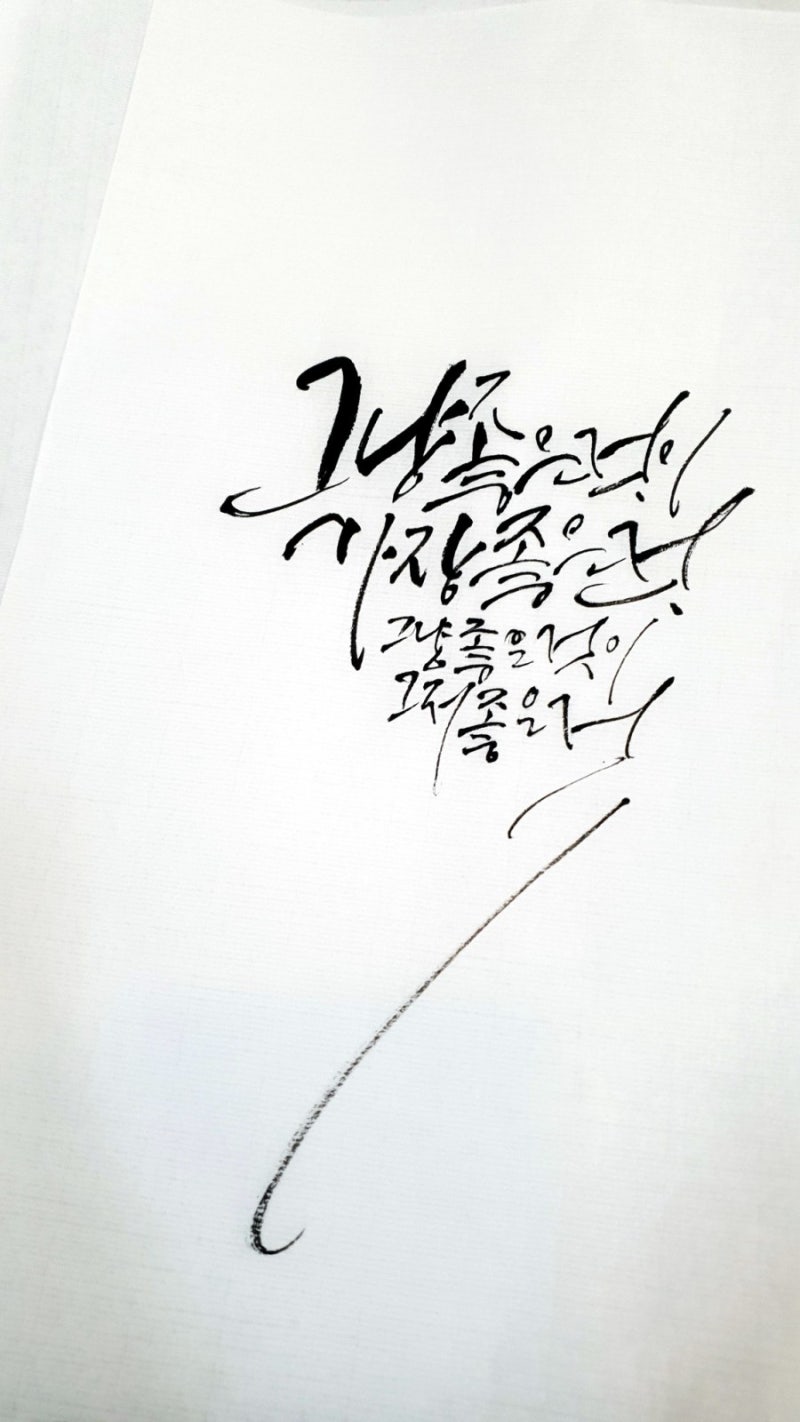 그냥 좋은 것이
가장 좋은 것
그냥 좋은 것이
그저 좋은 것